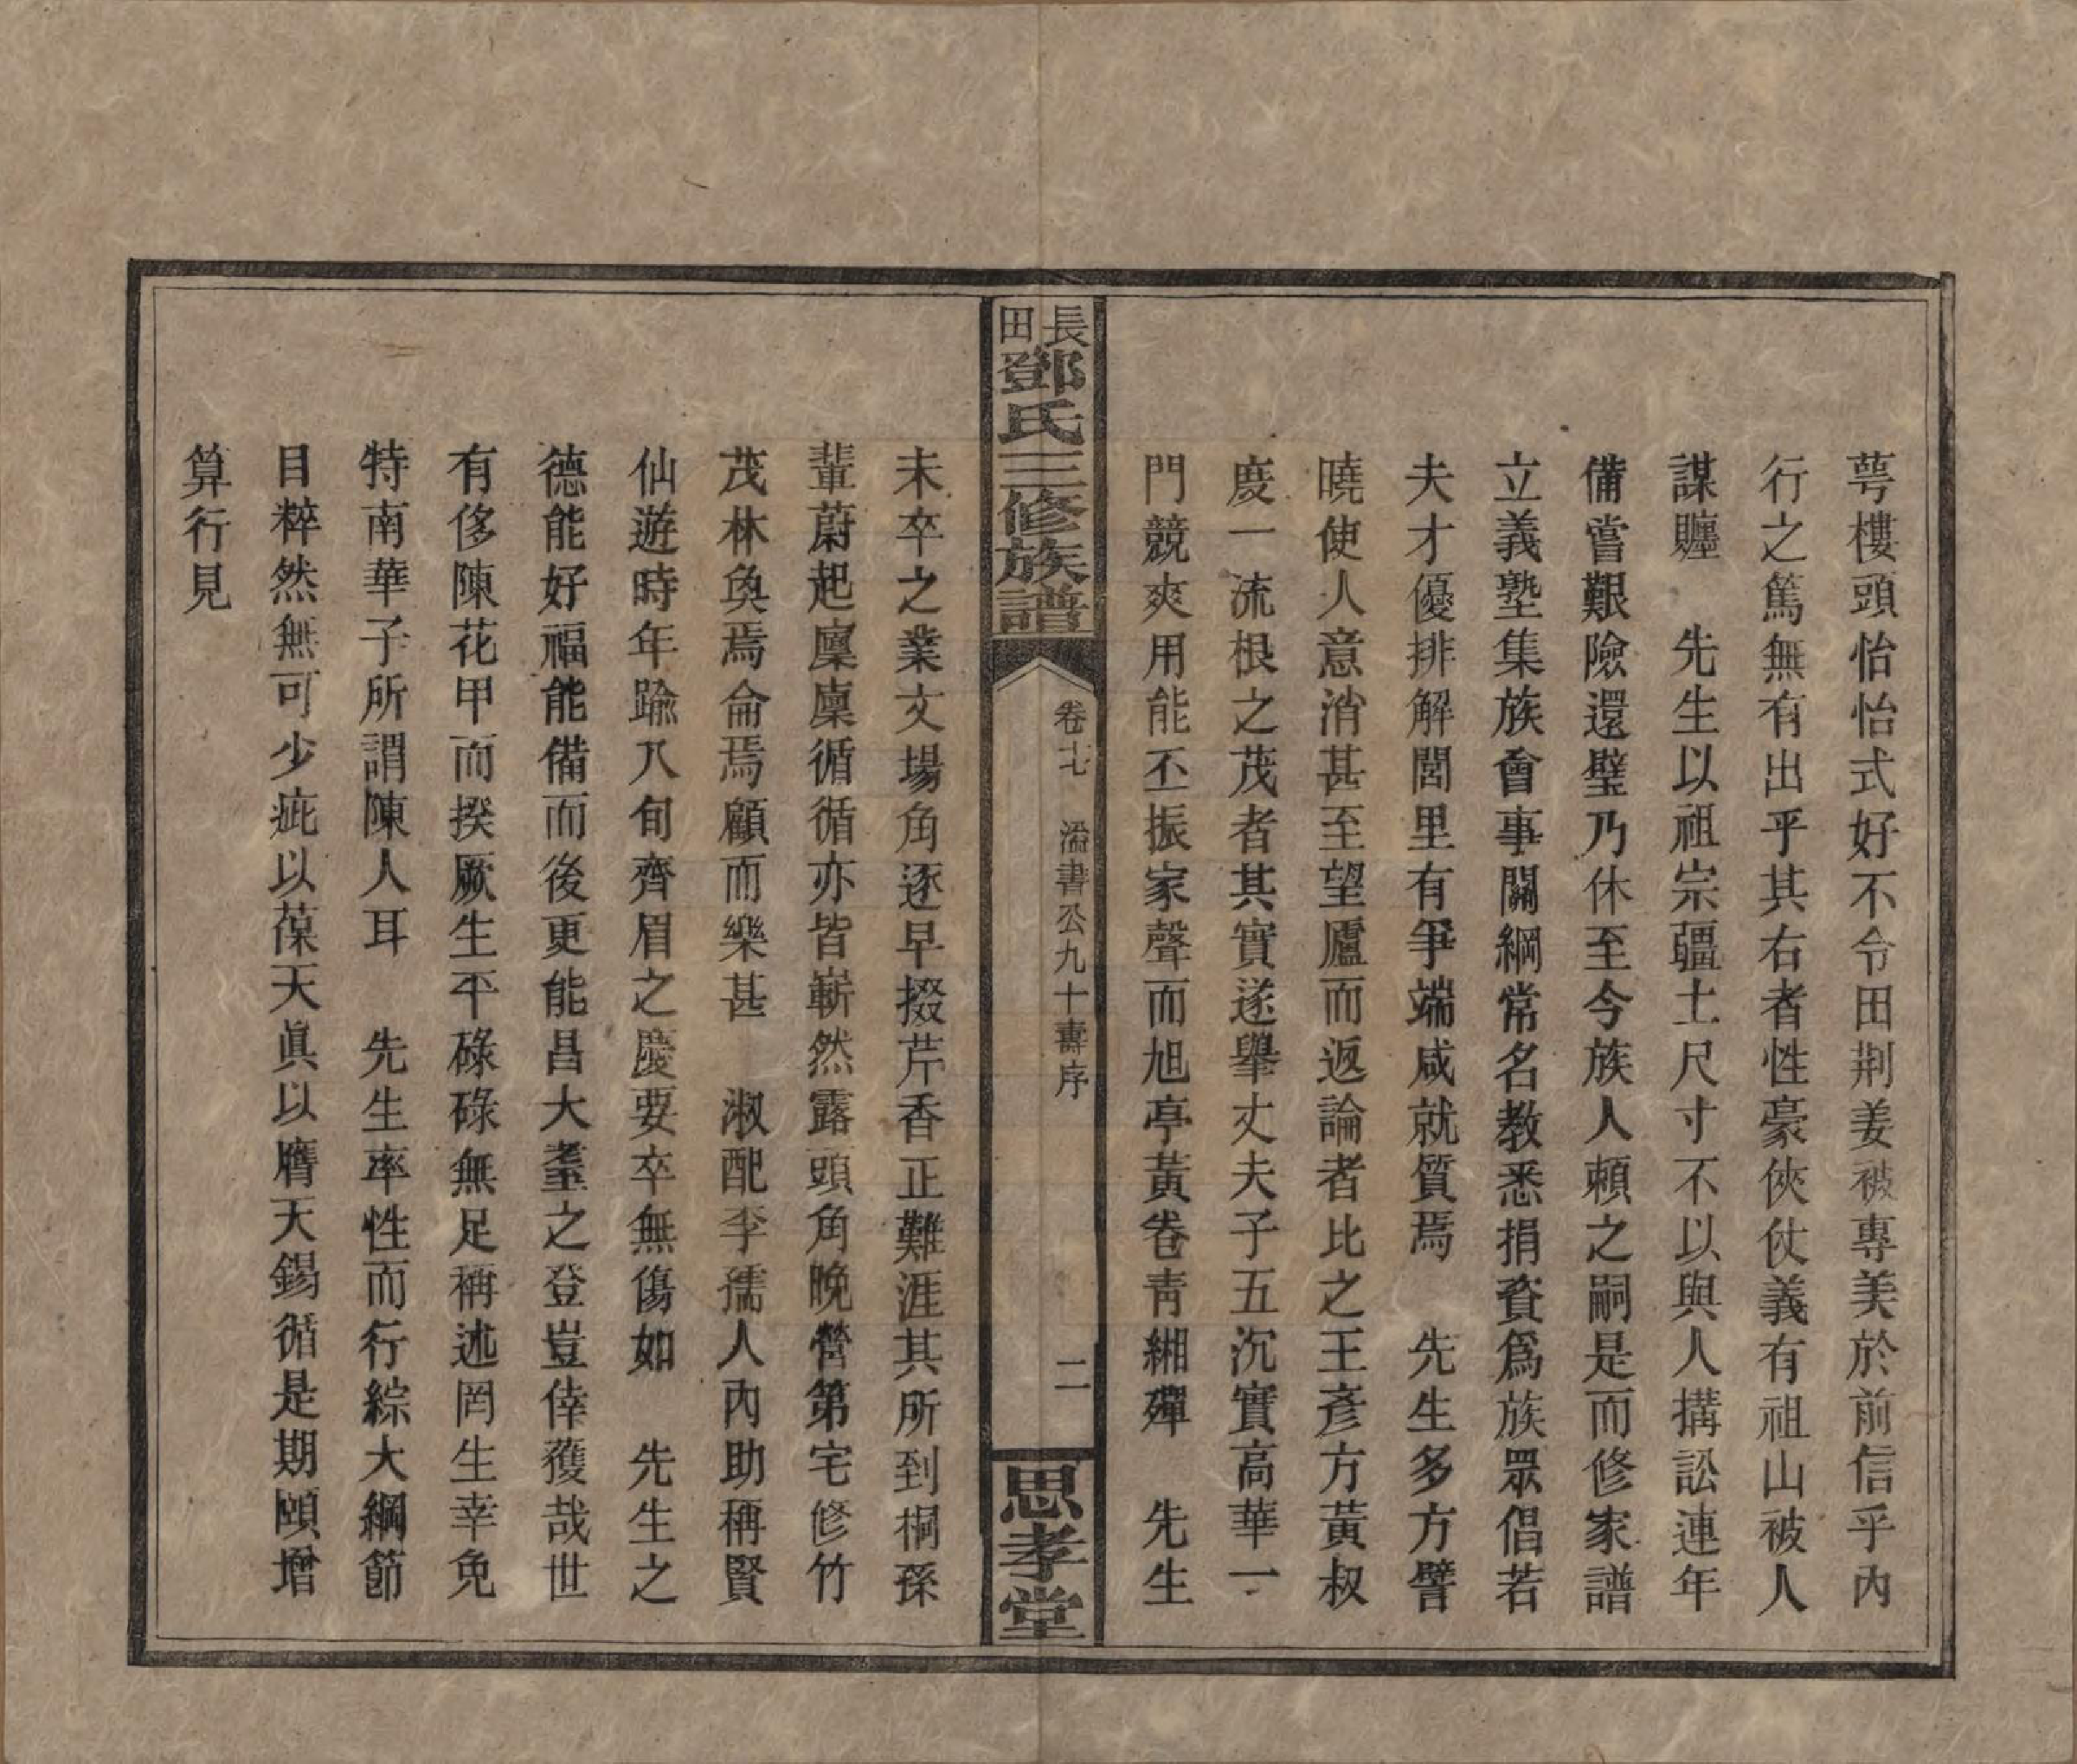 萼樓頭怡怡式好不令田荆姜被專美於前信乎內
行之篤無有出乎其右者性豪俠仗義有祖山被人
謀騹　先生以祖宗疆土尺寸不以與人搆訟連年
備嘗艱險還璧乃休至今族人賴之嗣是而修家譜
立義塾集族會事關綱常名教悉捐資爲族眾倡若
夫才優排解閭里有爭端咸就質焉　先生多方譬
曉使人意消甚至望廬而返論者比之王彥方黃叔
度一流根之茂者其實遂舉丈夫子五沉實高華一
門競爽用能丕振家聲而旭亭黃卷青緗殫　先生
長田鄧氏三修族譜
卷七　溢書公九十壽序
二
思孝堂
未卒之業文場角逐早掇芹香正難涯其所到桐孫
輩蔚起廩廩循循亦皆嶄然露頭角晚營第宅修竹
茂林奐焉侖焉顧而樂甚　淑配李孺人內助稱賢
仙遊時年踰八旬齊眉之慶要卒無傷如　先生之
德能好福能備而後更能昌大耋之登豈倖獲哉世
有侈陳花甲而揆厥生平碌碌無足稱述罔生幸免
特南華子所謂陳人耳　先生率性而行綜大綱節
目粹然無可少疵以葆天眞以膺天錫循是期頤增
算行見